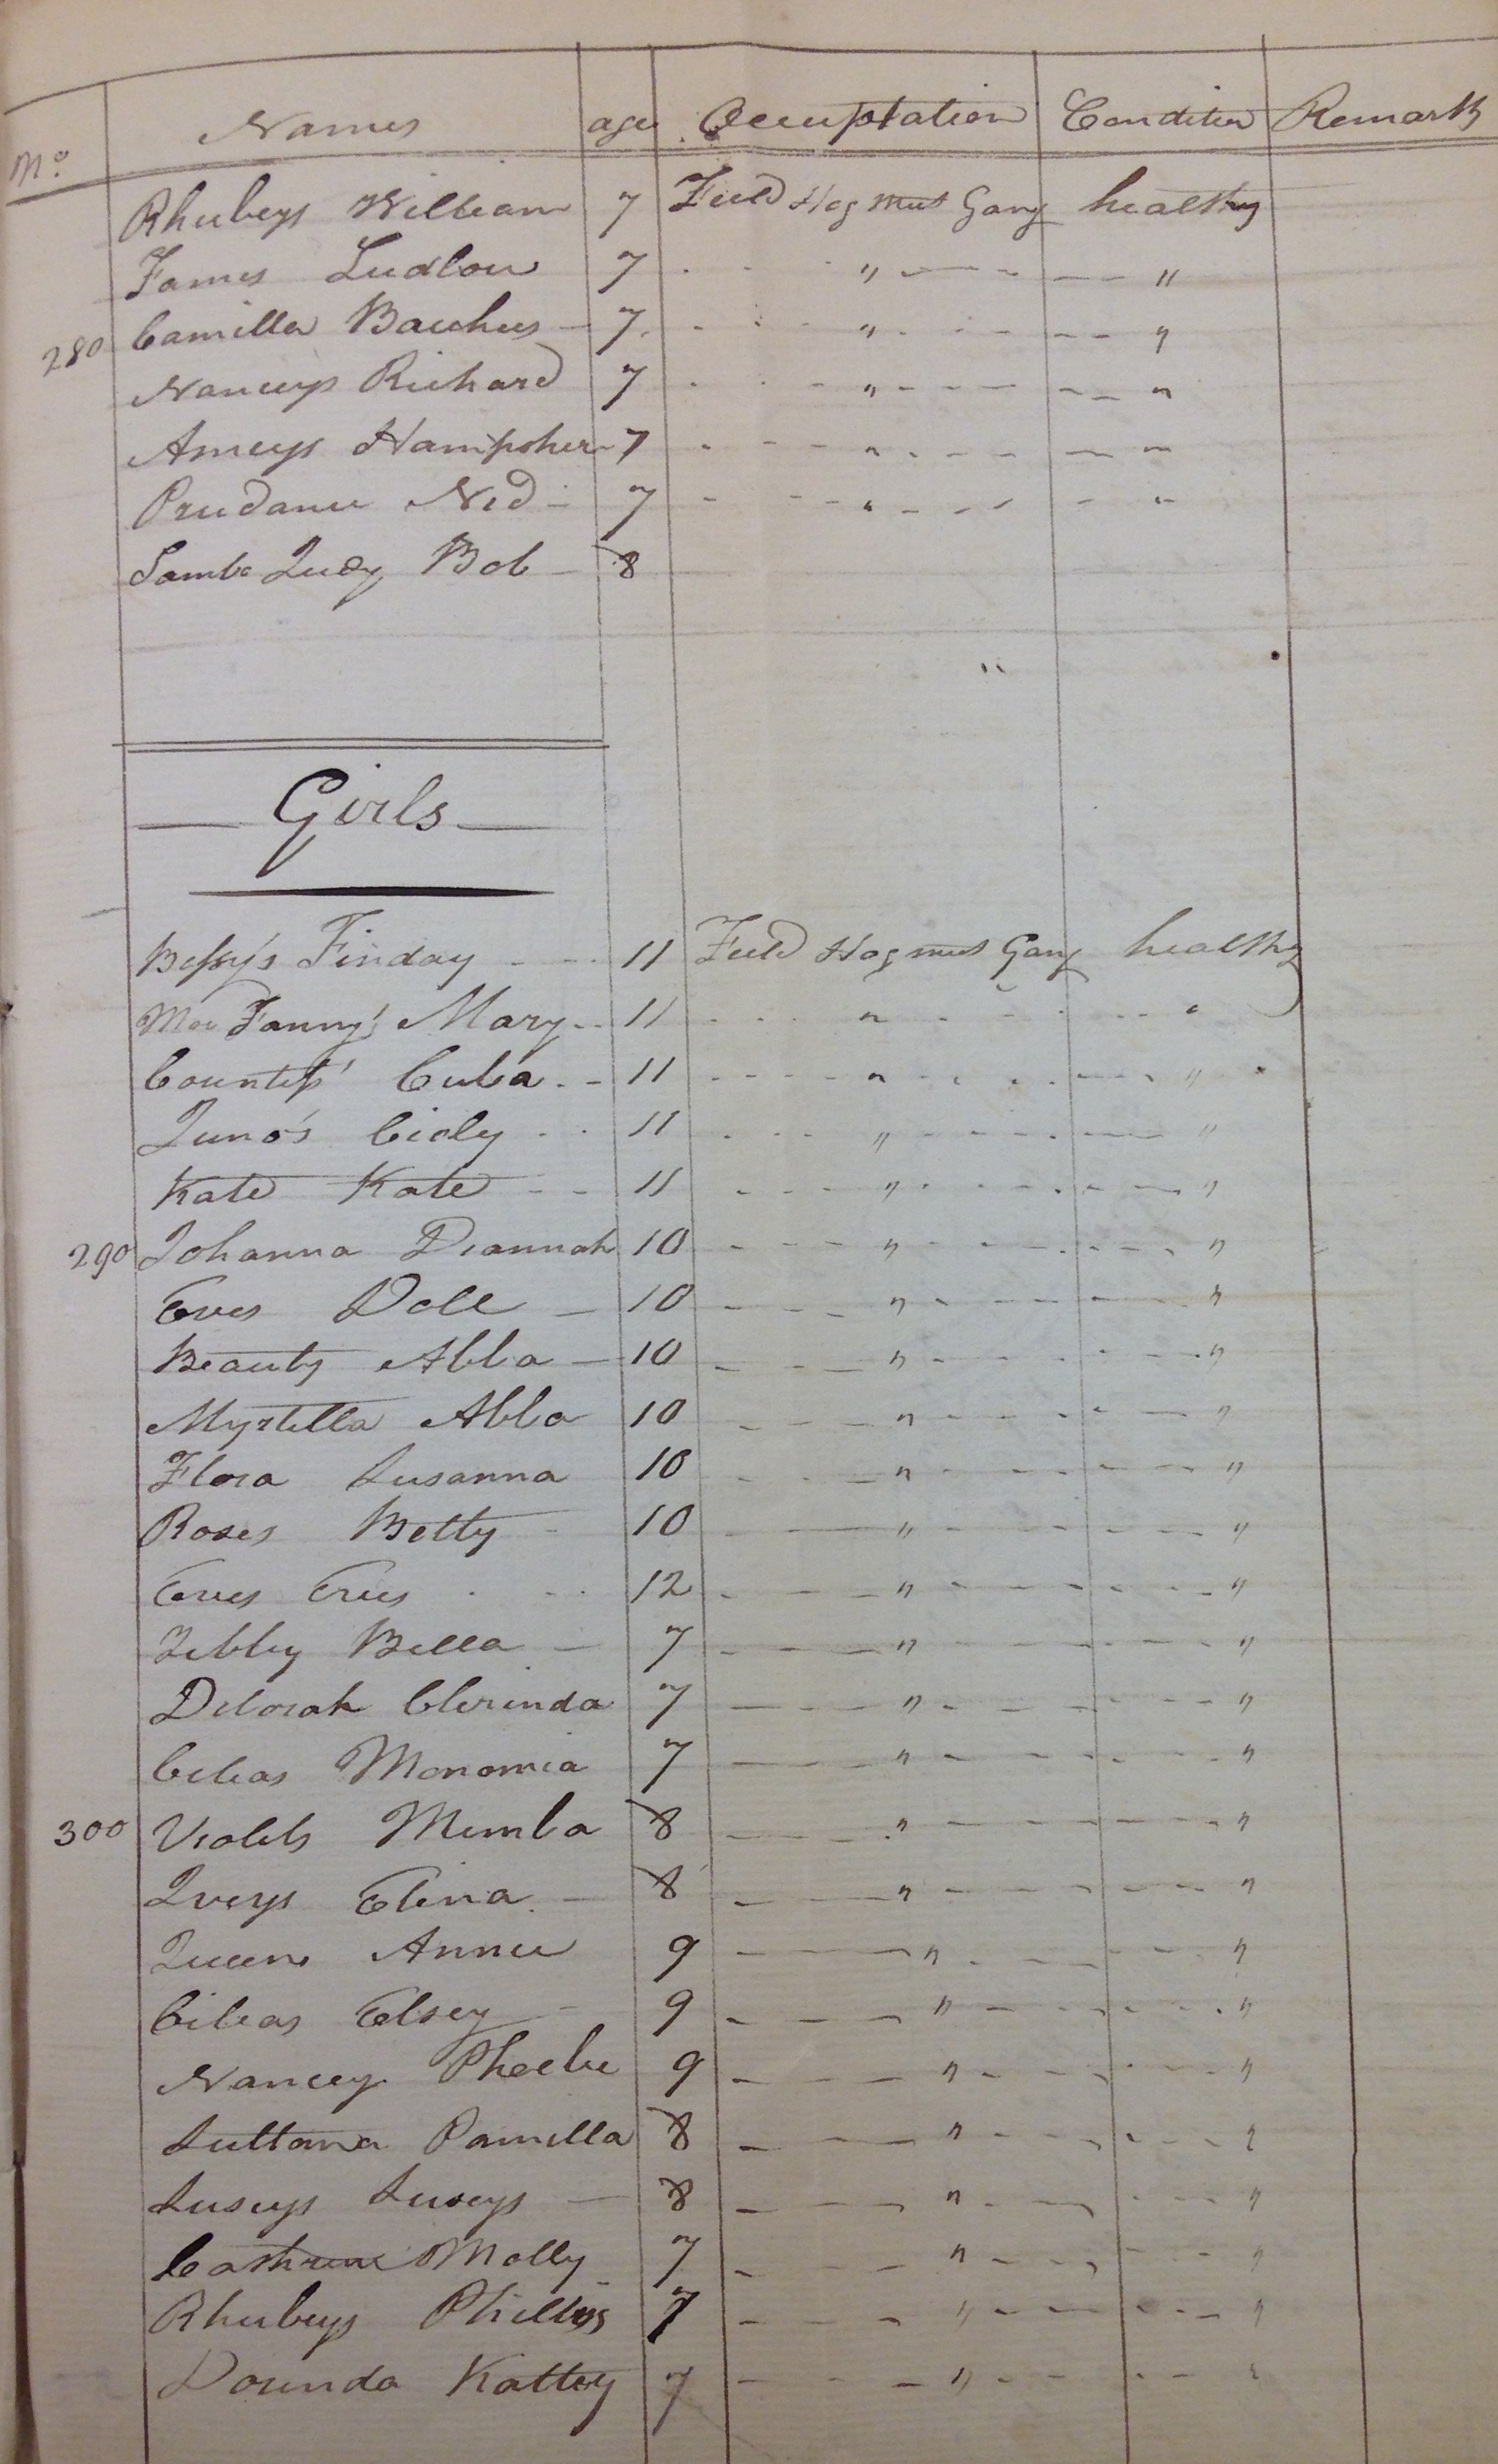 No. Names age Occupation Condition Remark
Rhubeys William 7 Field Hog meet Gang healthy
James Ludlow 7 " "
280 Camilla Bacchus 7 " "
Nanceys Richard 7 " "
Ameys Hampsher 7 " "
Prudance Ned 7 " "
Sambo Judy Bob 8
"
Girls
Bessy's Finday 11 Field Hog meet Gang healthy
Moc Fanny's Mary 11 " "
Countess' Cuba 11 " "
Juno's Cicly 11 " "
Kate Kate 11 " "
290 Johanna Diannah 10 " "
Eves Doll 10 " "
Beauty Abba 10 " "
Myrtilla Abba 10 " "
Flora Susanna 10 " "
Roses Betty 10 " "
Eves Eves 12 " "
Libby Bella 7 " "
Deborah Clerinda 7 " "
Celias Monomia 7 " "
300 Violets Mimba 8 " "
Iveys Elena 8 " "
Queens Annie 9 " "
Cileas Elsey 9 " "
Nancey Phoebe 9 " "
Sultana Pamella 8 " "
Luseys Luseys 8 " "
Cashrine Molly 7 " "
Rhubeys Phillis 7 " "
Dorinda Kattey 7 " "